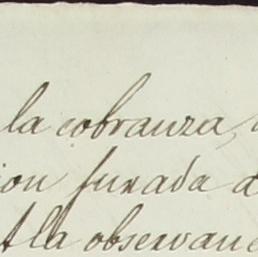 la cobranza,
ion jurada d
la observan